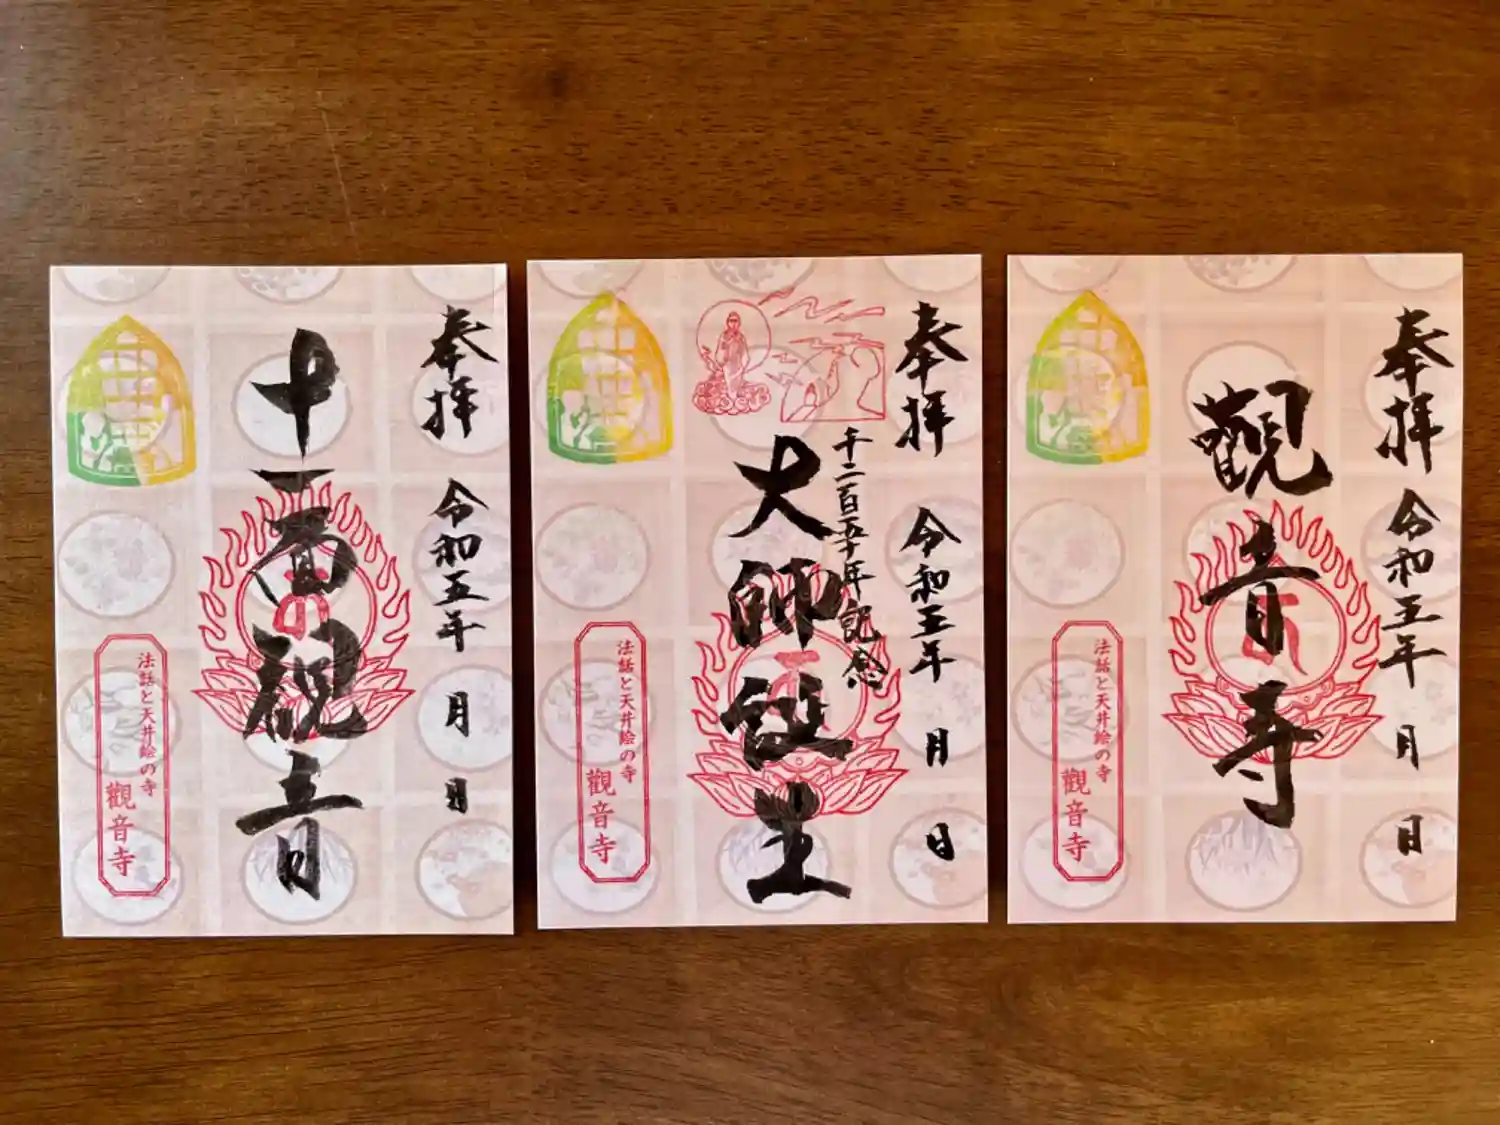 奉拝 令和五年 月 日
十一面観音
法話と天井絵の寺
觀音寺
奉拝 令和五年 月 日
千二百五十年記念
大師誕生
法話と天井絵の寺
觀音寺
奉拝 令和五年 月 日
觀音寺
法話と天井絵の寺
觀音寺